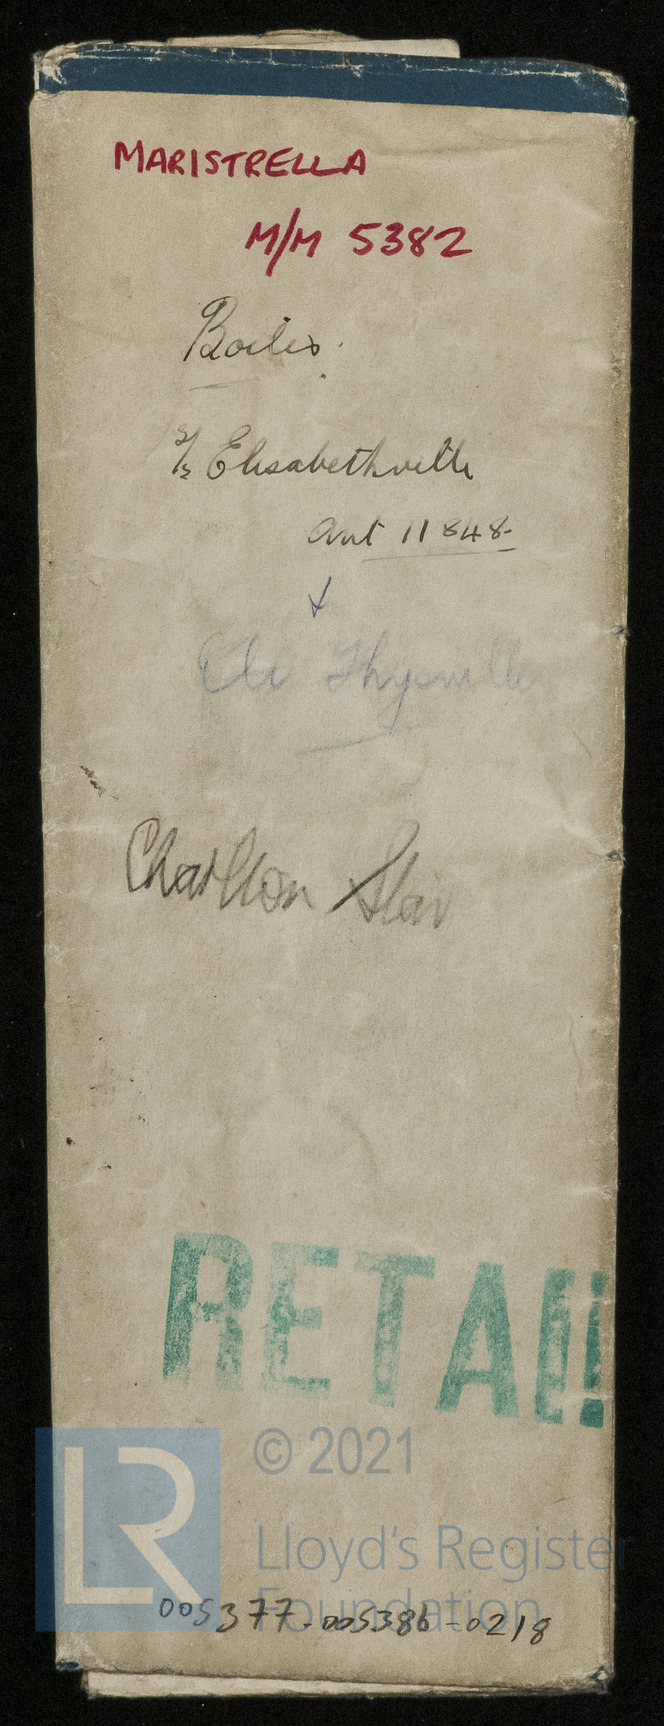 MARISTRELLA
M/M 5382
Boiler.
S/S Elisabethville
Ant 11848
+
Charlton Star
RETAI
LR
© 2021
Lloyd's Register
Foundation
005377-005386-0218